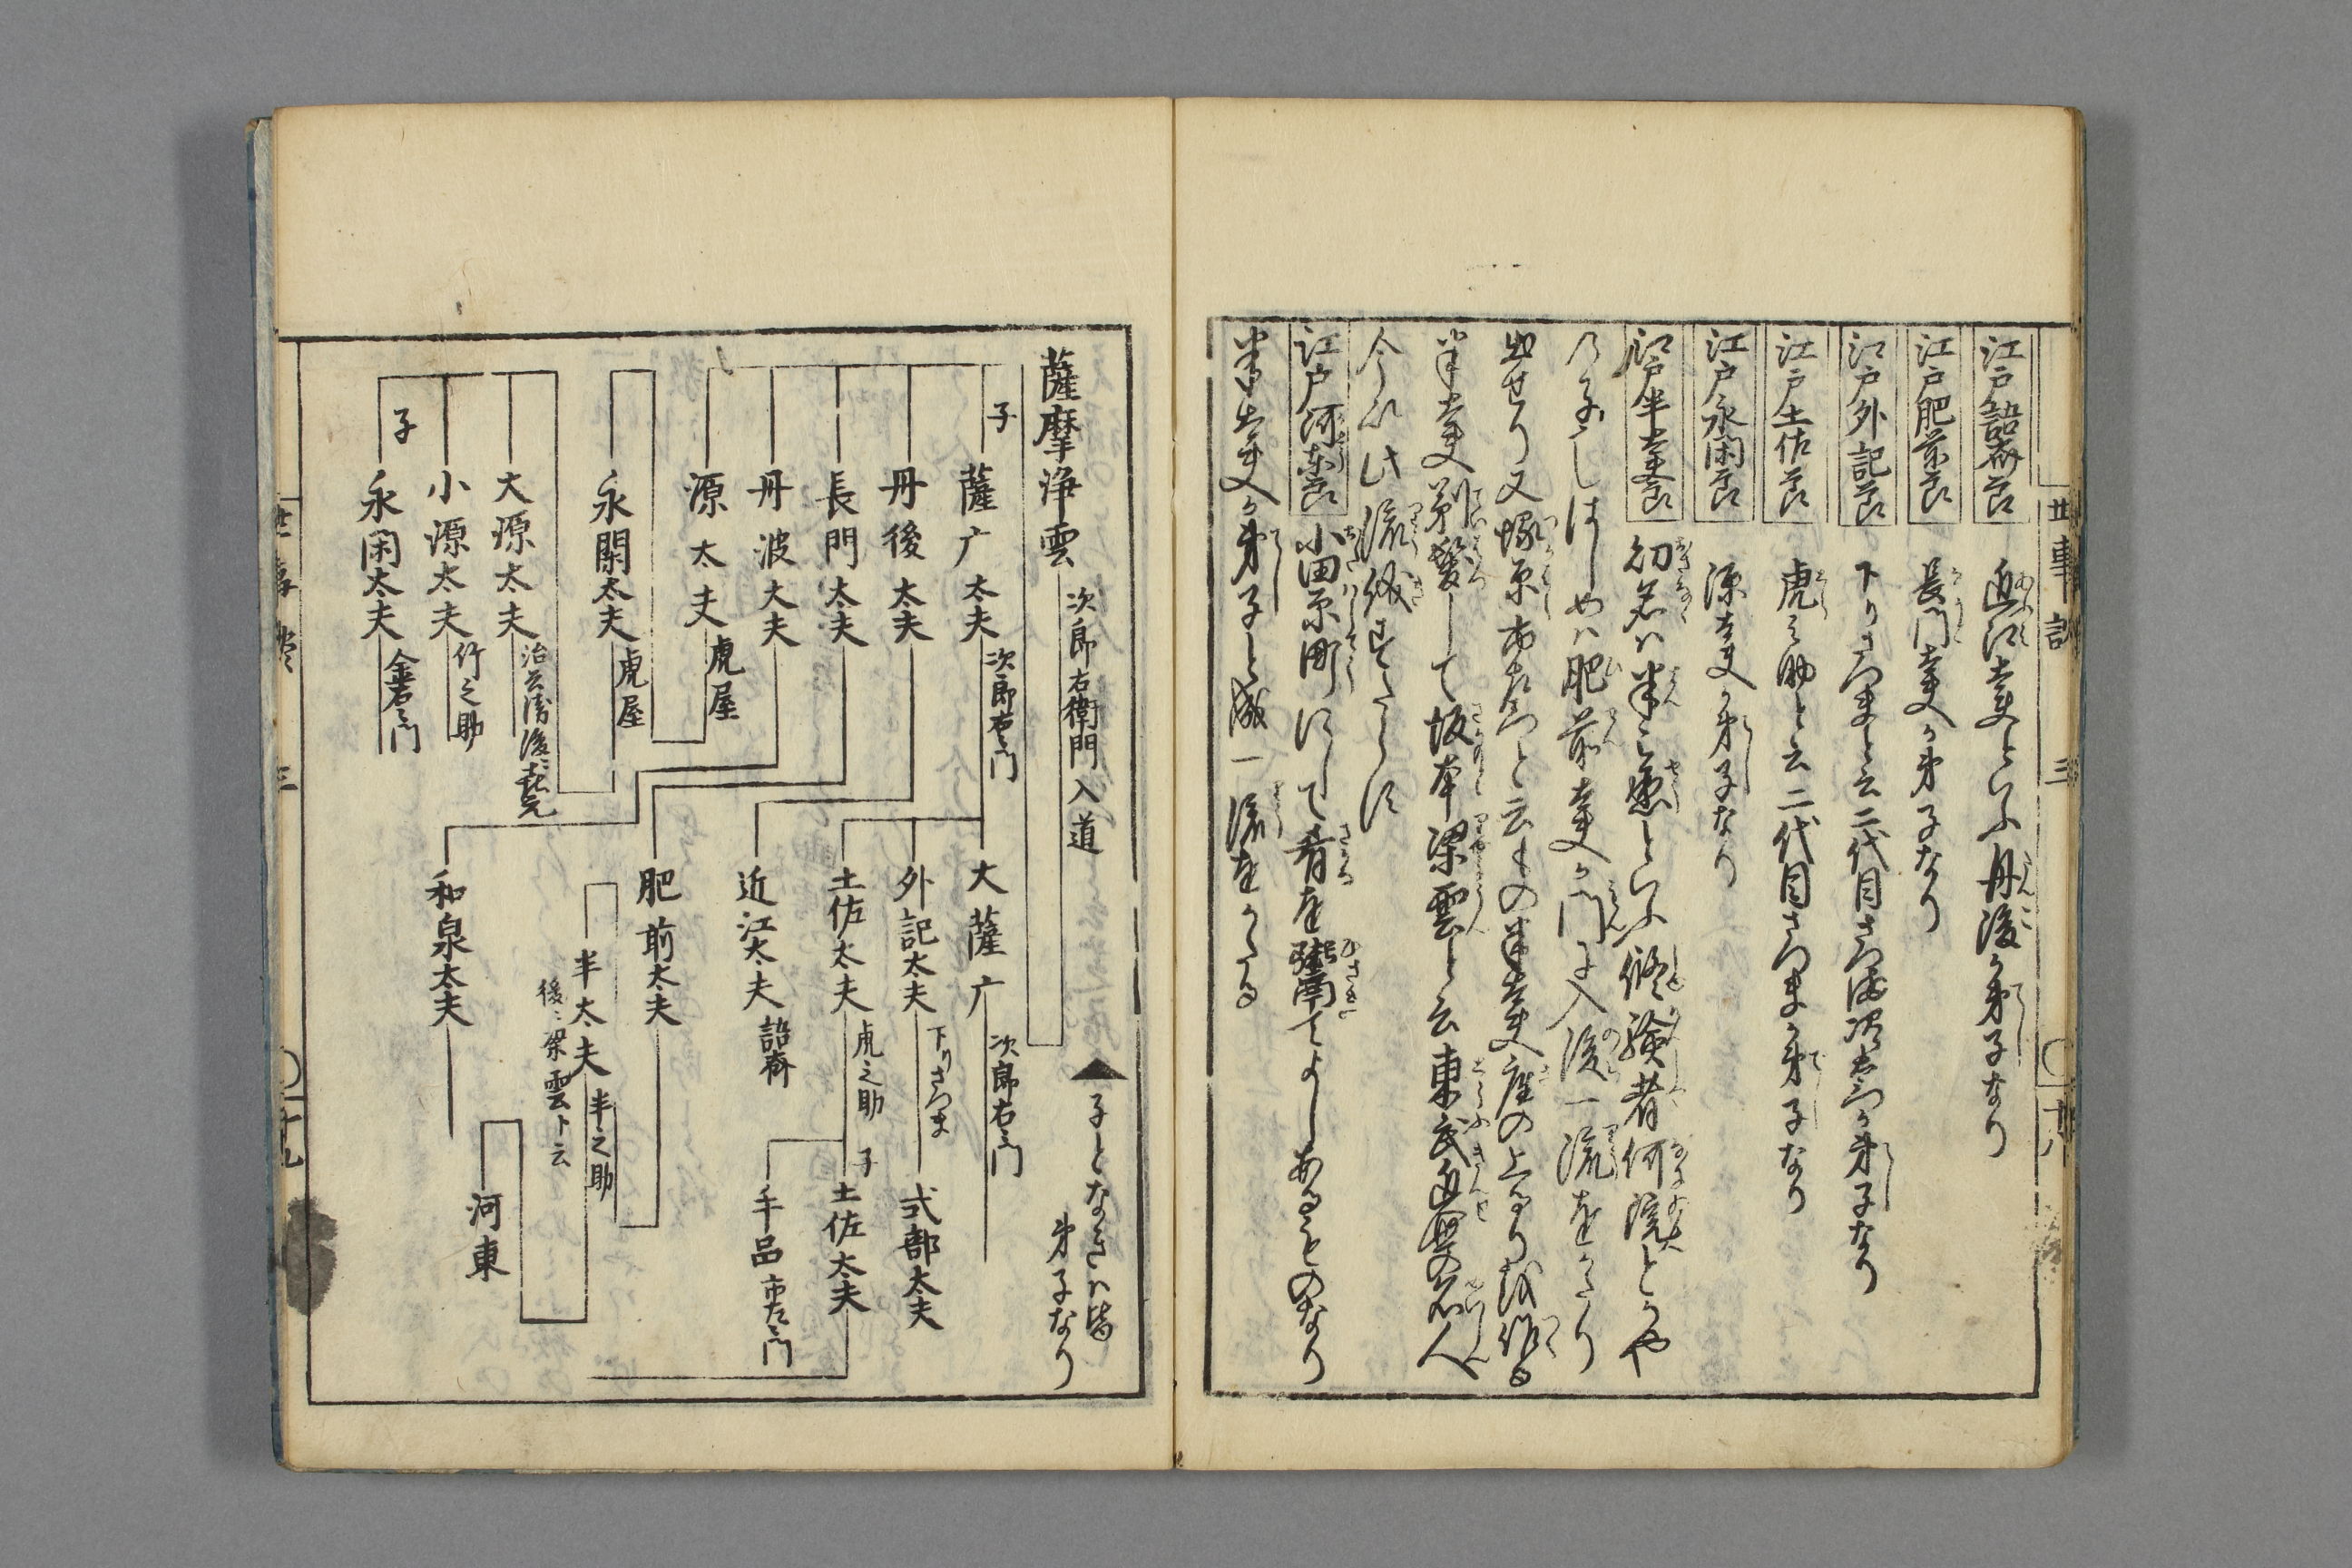 江戸語斎節 近江太夫といふ丹後か弟子なり
江戸肥前節 長門太夫か弟子なり
江戸外記節 下りさつまと云二代目さつま次郎右衛門か弟子なり
江戸土佐節 虎之助と云二代目さつまか弟子なり
江戸永閑節 源太夫か弟子なり
江戸半太夫節 幼名は半之丞といふ修験者何院とかや
の子にしはしめハ肥前太夫か門に入後一流をかたり
出せり又塚原市左衛門と云もの半太夫座の上るりを作る
半太夫剃髪して坂本梁雲と云東武近世の名人
今に此流儀
江戸河東節 小田原町にして肴を鬻てよしあるものなり
半太夫か弟子と成一流をかたる
世事談 三
薩摩浄雲 次郎右衛門入道
▲子となきハ皆
弟子なり
子 薩广太夫 次郎右衛門
大薩广 次郎右衛門
丹後太夫
外記太夫 下りさつま
式部太夫
長門太夫
土佐太夫 虎之助
子 土佐太夫
丹波太夫
近江太夫 語斎
手品市左衛門
源太夫 虎屋
肥前太夫
永閑太夫 虎屋
半太夫 半之助
後ニ梁雲ト云
大源太夫
小源太夫 竹之助
和泉太夫
河東
子 永閑太夫 金右衛門
三